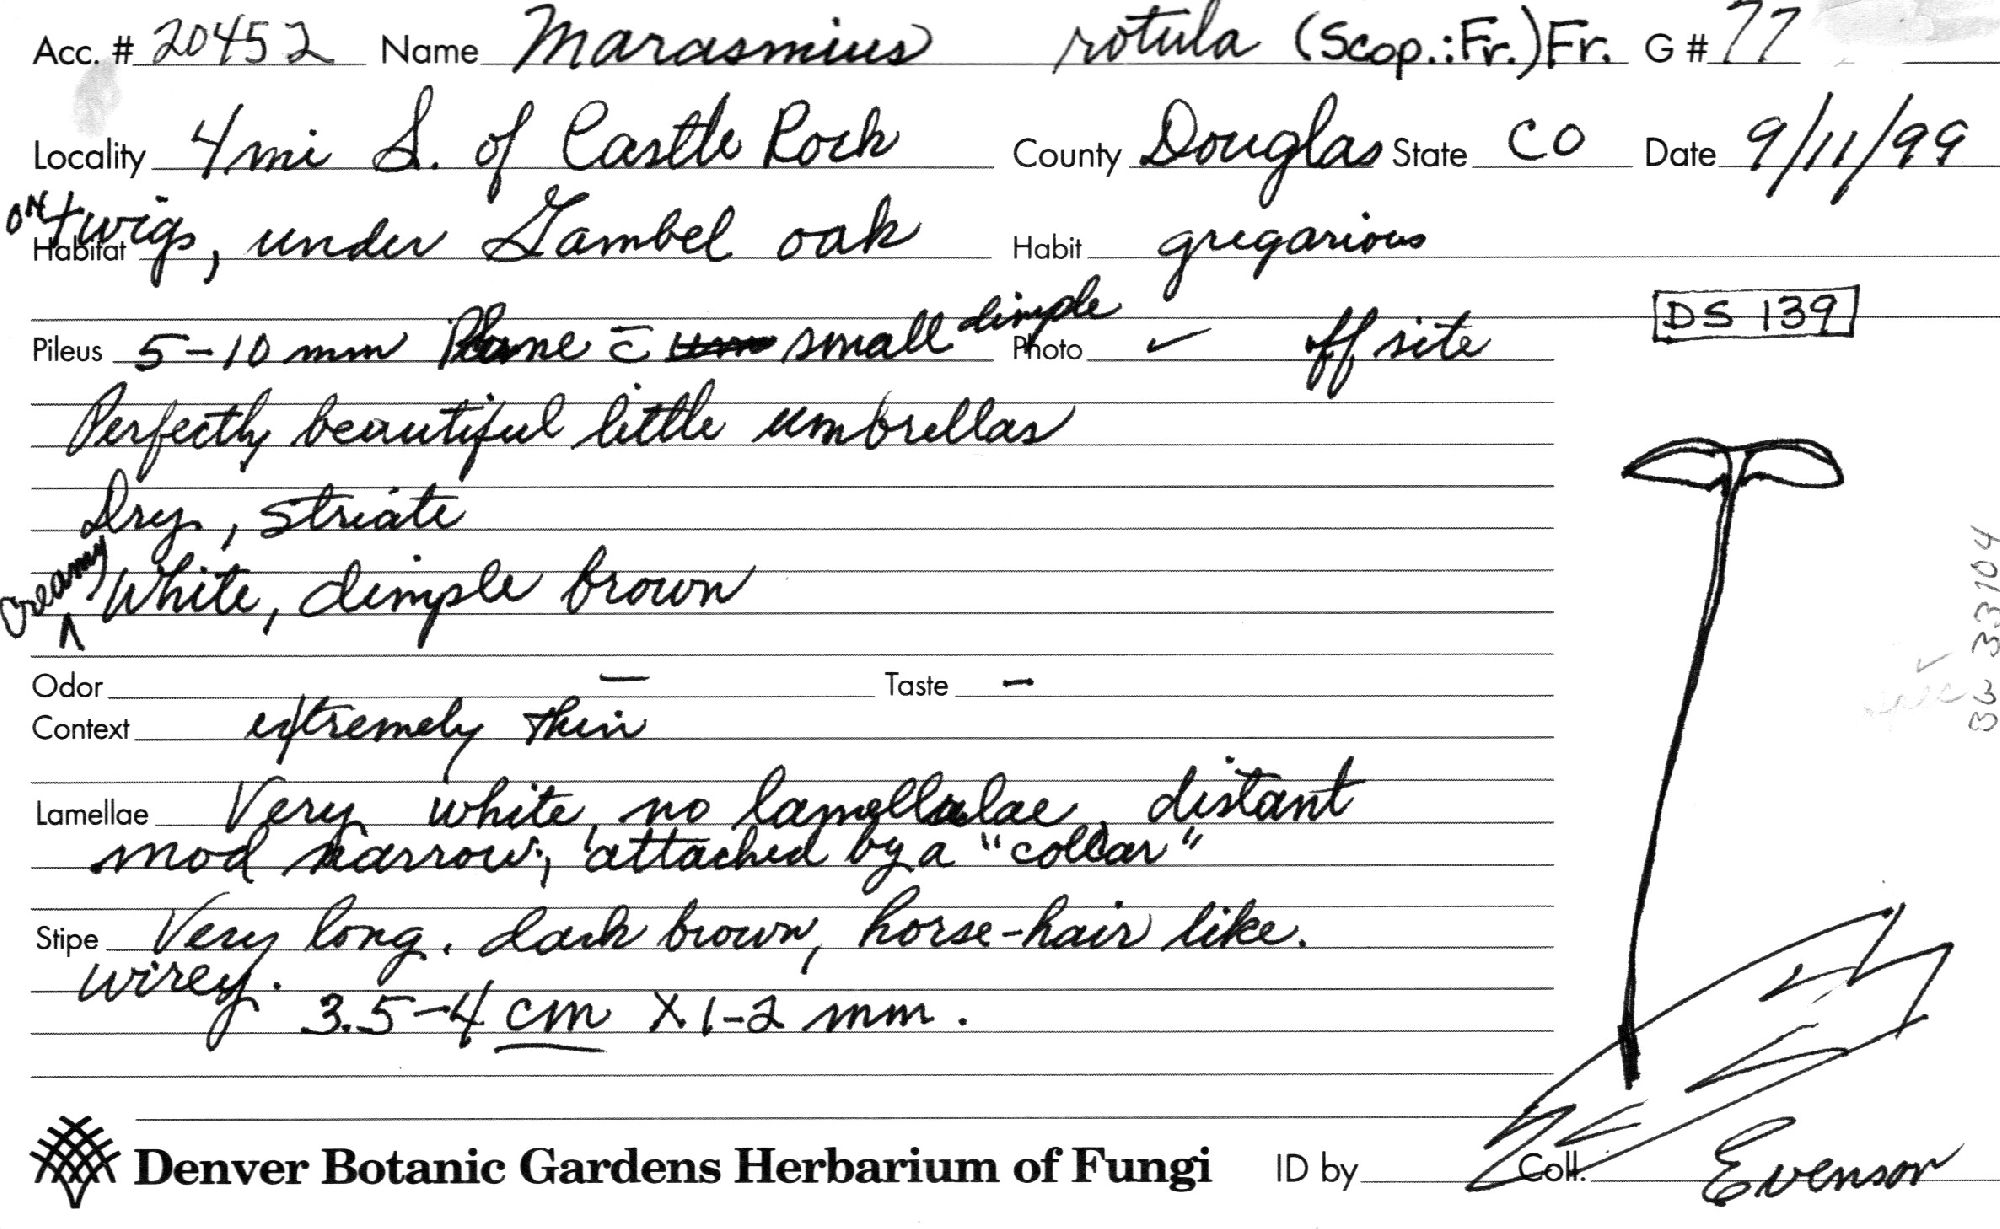 Acc. # 20452 Name Marasmius rotula (Scop.:Fr.)Fr. G # 77
Locality 4mi S. of Castle Rock County Douglas State CO Date 9/11/99
Habitat on twigs, under Gambel oak Habit gregarious
DS 139
Pileus 5-10 mm Plane c̄ small dimple Photo ✓ off site
Perfectly beautiful little umbrellas
Dry, striate
Creamy White, dimple brown
Odor — Taste —
Context extremely thin
Lamellae Very white, no lamellulae, distant
mod narrow, attached by a "collar"
Stipe Very long. dark brown, horse-hair like.
wirey.
3.5-4 cm X 1-2 mm.
33104
Denver Botanic Gardens Herbarium of Fungi ID by Coll. Evenson